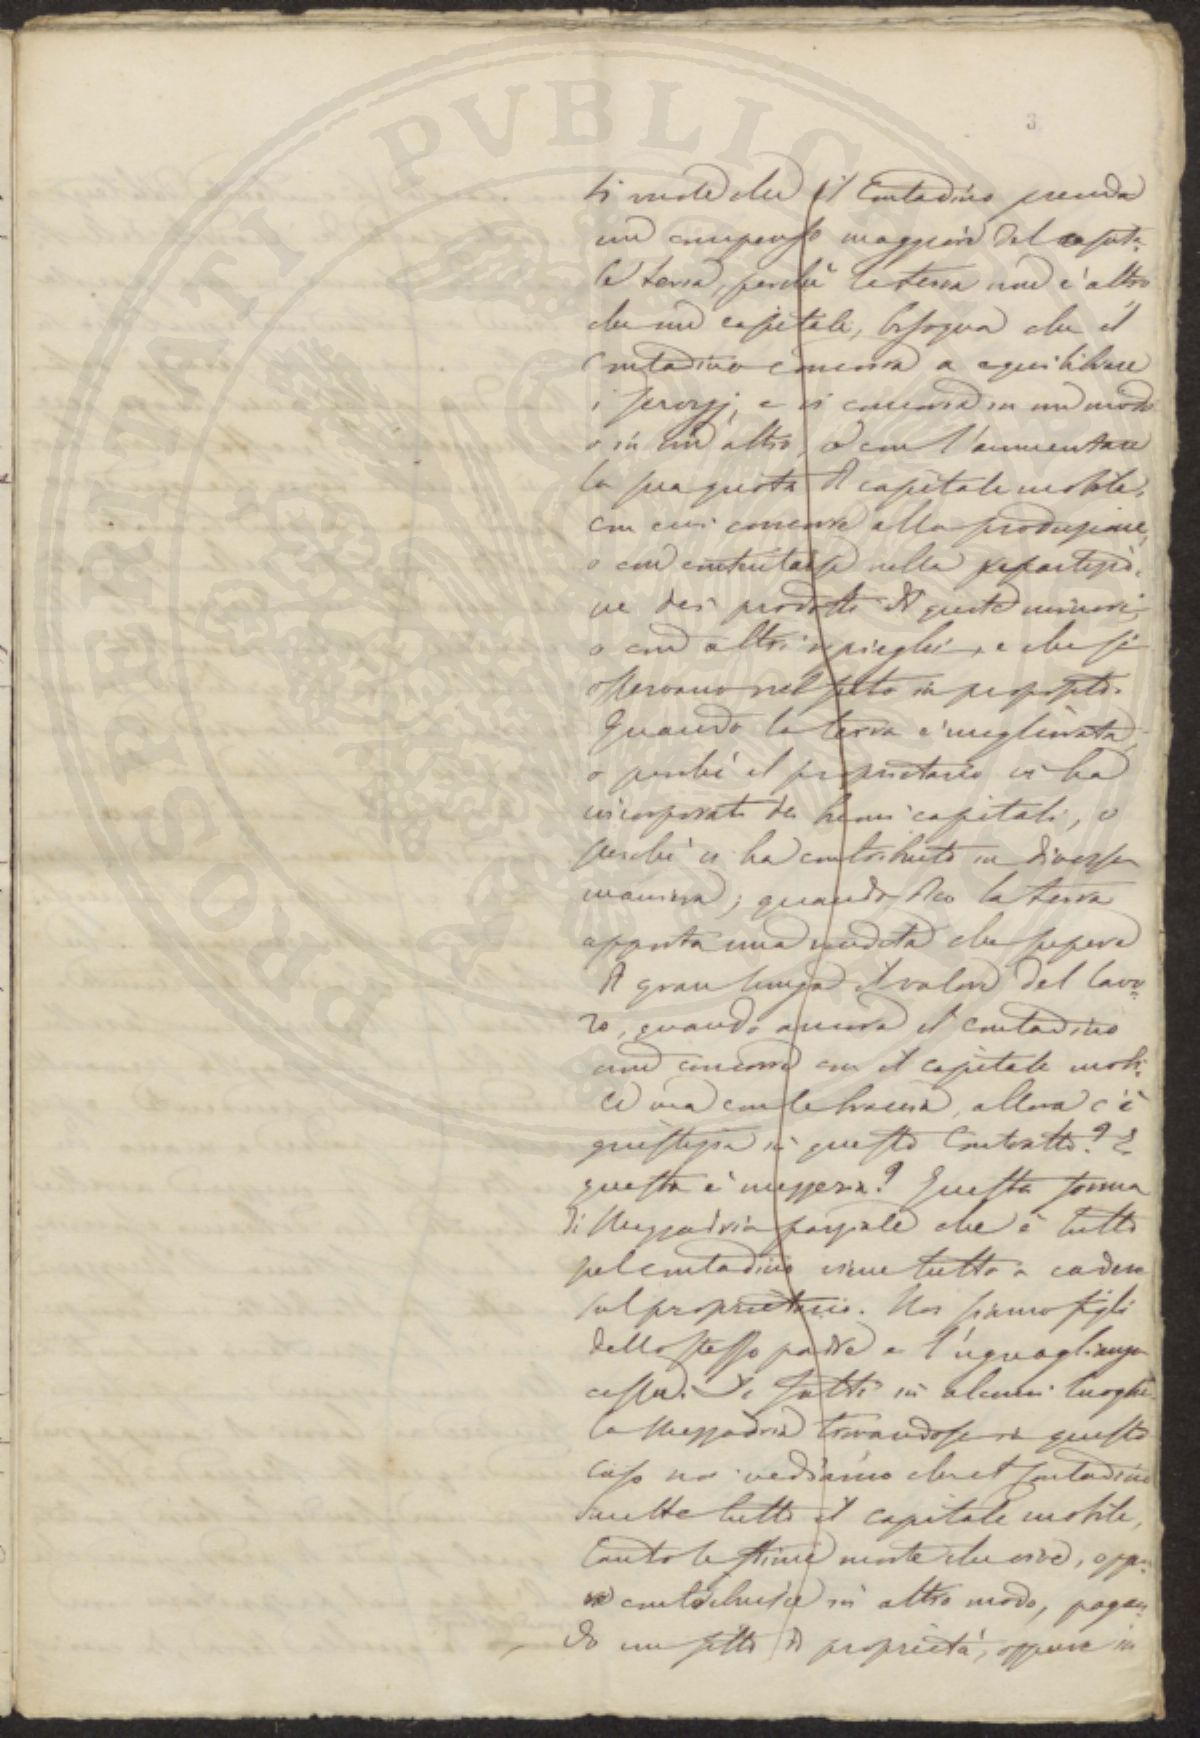 3
si vuole che il Contadino prenda
un compenso maggiore del capita-
le terra, perché la terra non è altro
che un capitale, bisogna che il
contadino concorra a equilibrare
i servizj, e vi concorra in un modo
o in un'altro, o con l'aumentare
la sua quota di capitale mobile,
con cui concorre alla produzione,
o con contentarsi nella repartizio-
ne dei prodotti di quote minori,
o con altri ripieghi, e che si
osservano nel fatto in proposito.
Quando la terra è migliorata,
o perché il proprietario vi ha
incorporati dei buoni capitali, o
perché vi ha contribuito in diversa
maniera; quando dico la terra
apporta una rendita che supera
di gran lunga il valore del lavo-
ro, quando ancora il contadino
non concorre con il capitale mobi-
le ma con le braccia, allora c'è
giustizia in questo Contratto? E
questa è mezzeria? Questa forma
di Mezzadria parziale che è tutto
pel contadino viene tutto a cadere
sul proprietario. Noi siamo figli
dello stesso padre e l'uguaglianza
cessa. Di fatti in alcuni luoghi
la Mezzadria trovandosi in questo
caso noi vediamo che il Contadino
mette tutto il capitale mobile,
tanto le stime morte che vive, oppu-
re contribuisce in altro modo, pagan-
do un fitto di proprietà, oppure in
PROSPERITATI PVBLICAE